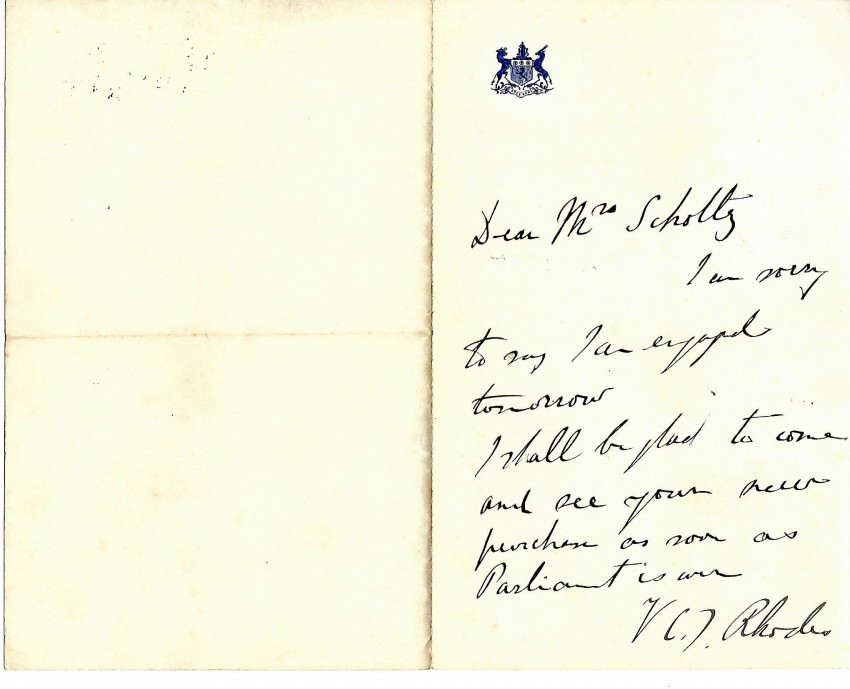 Dear Mrs Scholtz
I am sorry
to say I am engaged
tomorrow
I shall be glad to come
and see your new
purchase as soon as
Parliament is over
Y C. J. Rhodes